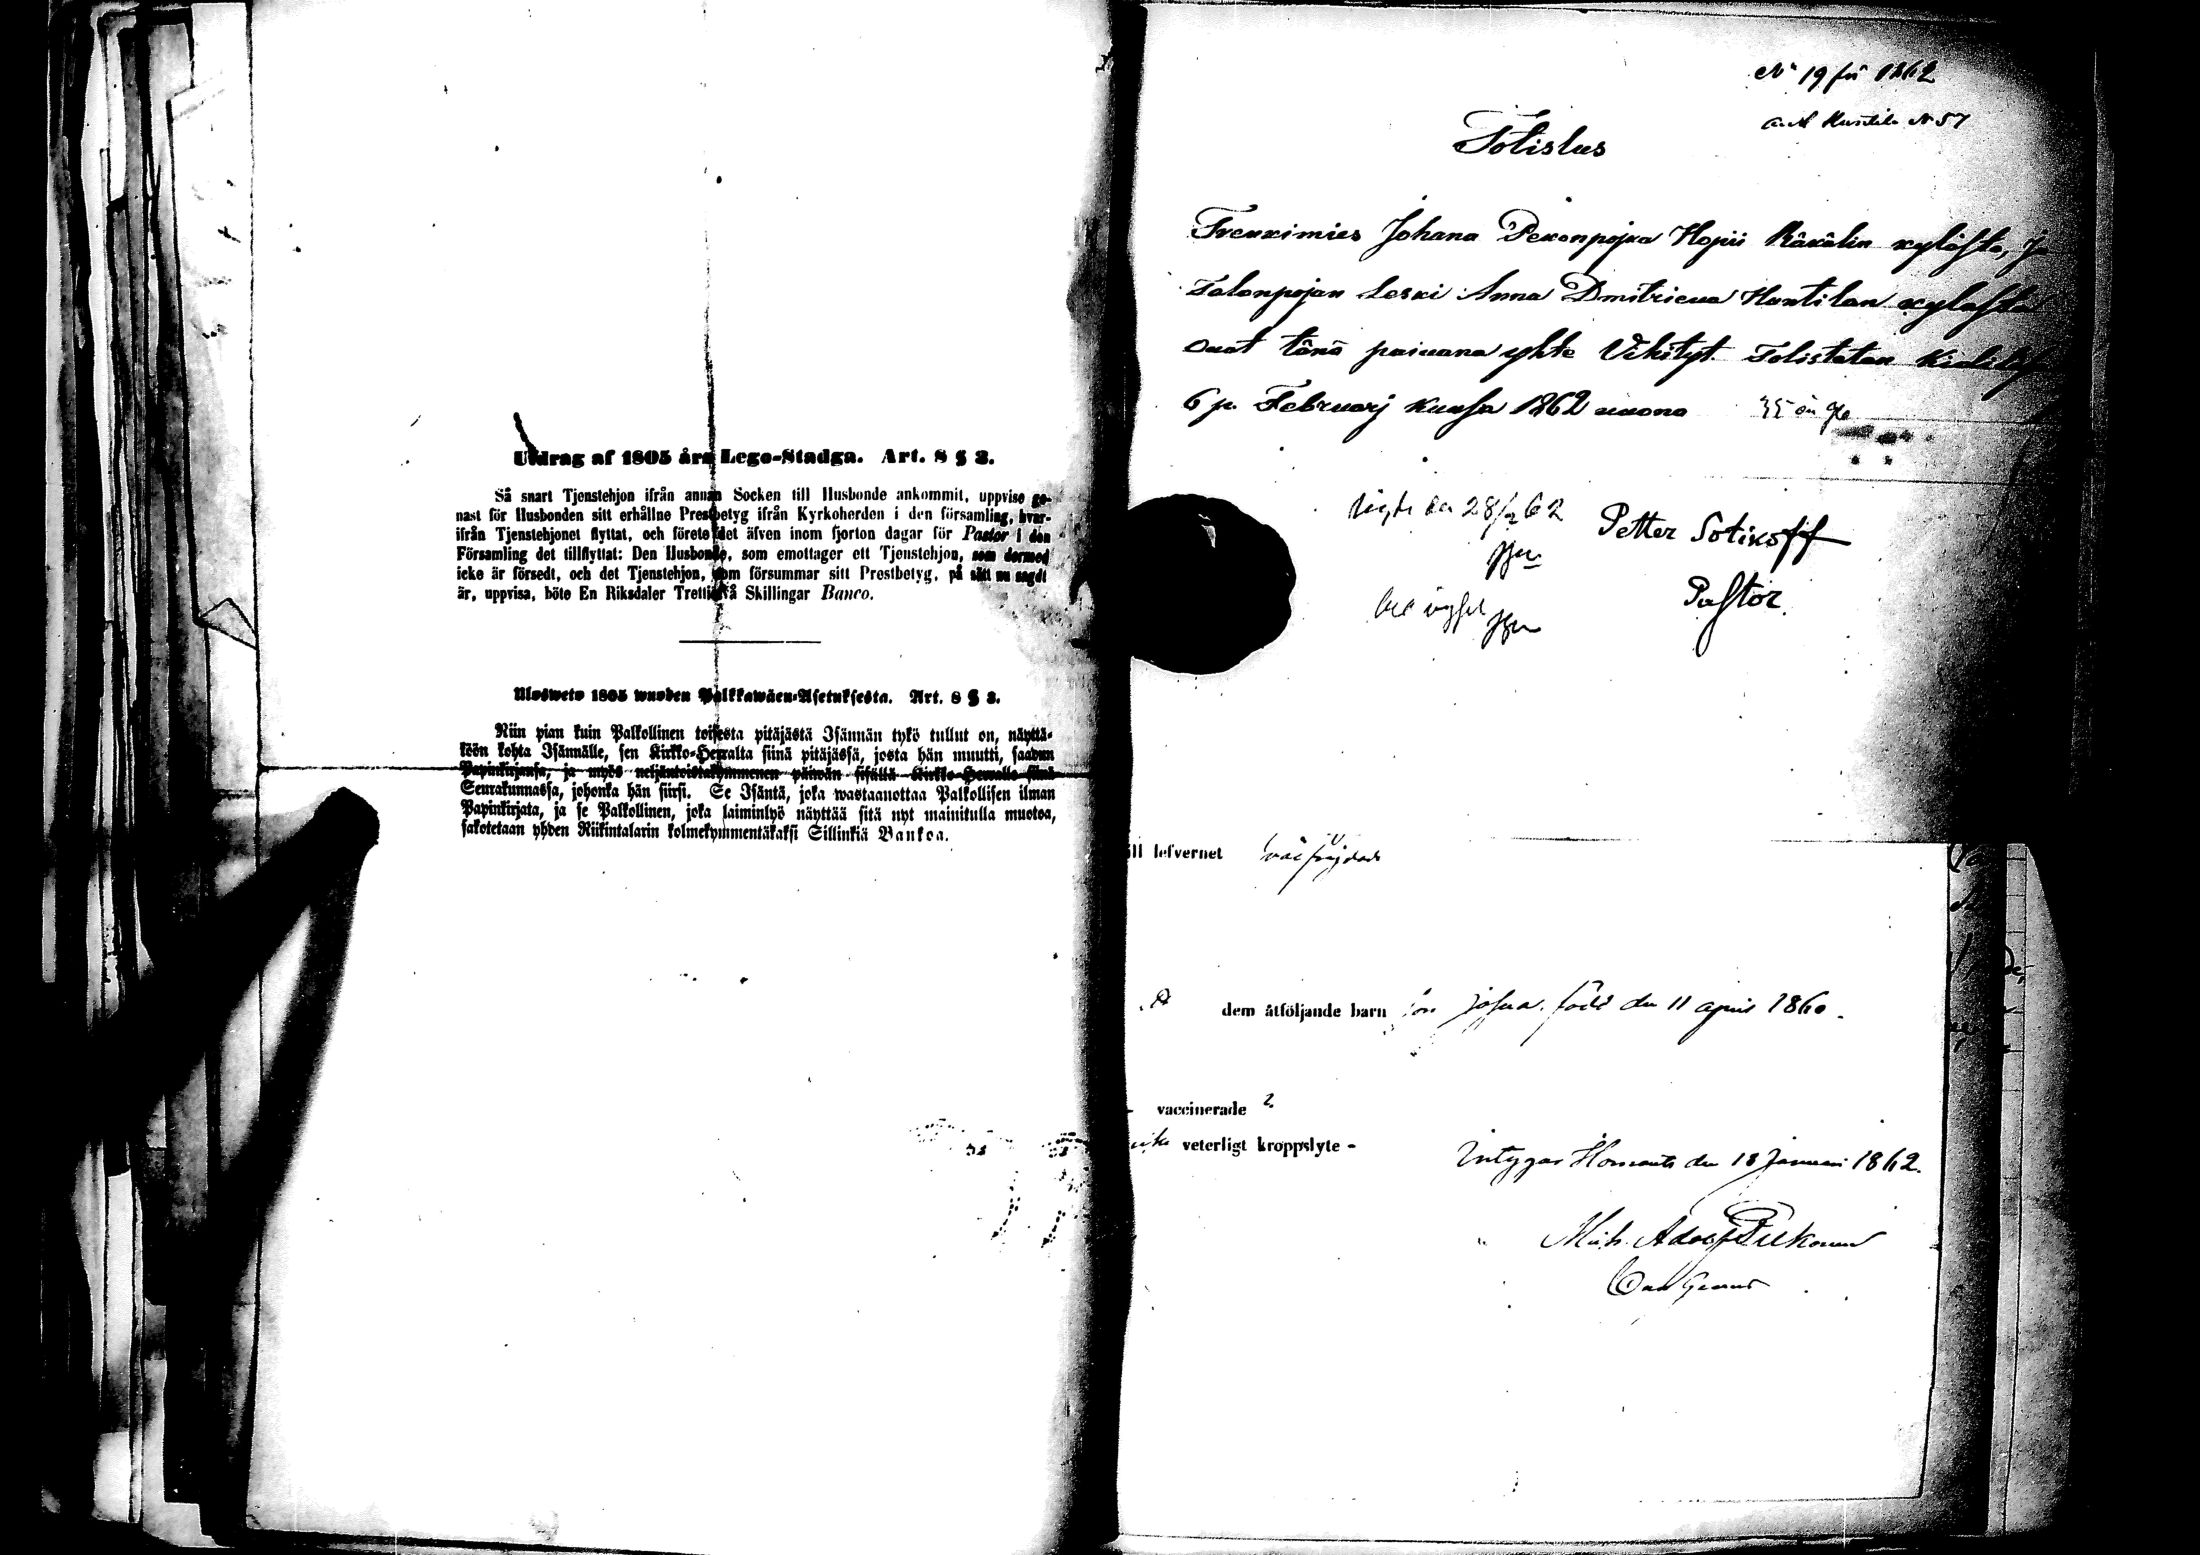 Utdrag af 1805 års Lego-Stadga. Art. 8 § 3.
Så snart Tjenstehjon ifrån annan Socken till Husbonde ankommit, uppvise ge-
nast för Husbonden sitt erhållne Prestbetyg ifrån Kyrkoherden i den församling, hvar-
ifrån Tjenstehjonet flyttat, och förete det äfven inom fjorton dagar för Pastor i den
Församling det tillflyttat: Den Husbonde, som emottager ett Tjenstehjon, som dermed
icke är försedt, och det Tjenstehjon, som försummar sitt Prestbetyg, på sätt nu sagdt
är, uppvisa, böte En Riksdaler Trettitvå Skillingar Banco.
Ulosweto 1805 wuoden Palkkawäen-Asetuksesta. Art. 8 § 3.
Niin pian kuin Palkollinen toisesta pitäjästä Isännän tykö tullut on, näyttä-
köön kohta Isännälle, sen Kirkko-Herralta siinä pitäjässä, josta hän muutti, saadun
Papinkirjansa, ja myös neljäntoistakymmenen päiwän sisällä Kirkko-Herralle siinä
Seurakunnassa, johonka hän siirsi. Se Isäntä, joka wastaanottaa Palkollisen ilman
Papinkirjata, ja se Palkollinen, joka laiminlyö näyttää sitä nyt mainitulla muotoa,
sakotetaan yhden Riikintalarin kolmekymmentäkaksi Sillinkiä Bankoa.
No 19 för 1862
Huntila N 57
Totistus
Trenkimies Johana Pekonpojka Hopii Räkälin kylästa, ja
Talonpojan Leski Anna Dmitrieua Huntilan kylasta
Ouat tänä paiuana yhte Vihityt. Tolistatan
6 p. Februarj kuusa 1862 uuona
den 28/2 62
Petter Sotikoff
Pastor.
ill lefvernet väl frejdade
dem åtföljande barn son Josua. född den 11 april 1860.
vaccinerade 2
veterligt kroppslyte -
Intygar den 18 Januari 1862.
Mich. Adolf